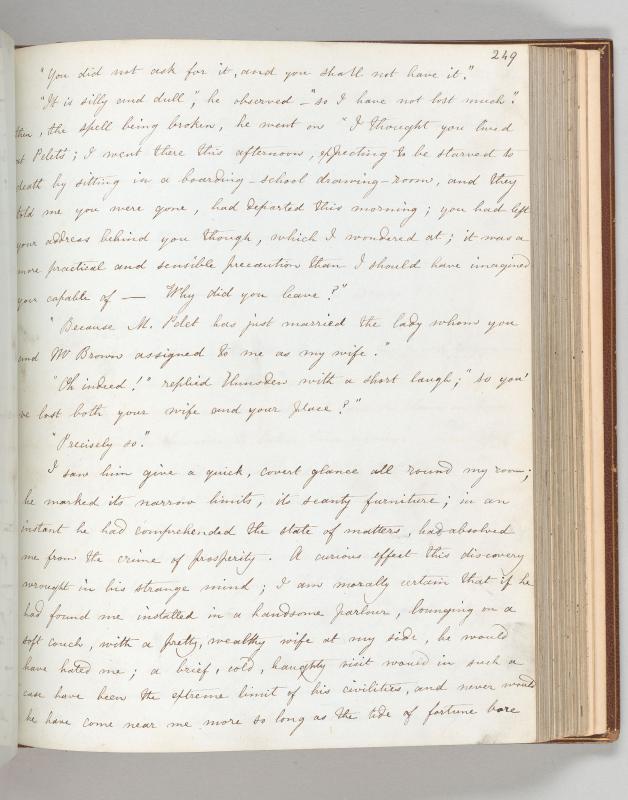 249
"You did not ask for it, and you shall not have it."
"It is silly and dull", he observed — "so I have not lost much".
then, the spell being broken, he went on "I thought you lived
at Pelet's; I went there this afternoon, expecting to be starved to
death by sitting in a boarding-school drawing-room, and they
told me you were gone, had departed this morning; you had left
your address behind you though, which I wondered at; it was a
more practical and sensible precaution than I should have imagined
your capable of — Why did you leave?"
"Because M. Pelet has just married the lady whom you
and Mr Brown assigned to me as my wife."
"Oh indeed!" replied Hunsden with a short laugh; "so you'
ve lost both your wife and your place?"
"Precisely so".
I saw him give a quick, covert glance all round my room;
he marked its narrow limits, its scanty furniture; in an
instant he had comprehended the state of matters, had absolved
me from the crime of prosperity. A curious effect this discovery
wrought in his strange mind; I am morally certain that if he
had found me installed in a handsome parlour, lounging on a
soft couch, with a pretty, wealthy wife at my side, he would
have hated me; a brief, cold, haughty visit would in such a
case have been the extreme limit of his civilities, and never would
he have come near me more so long as the tide of fortune bore